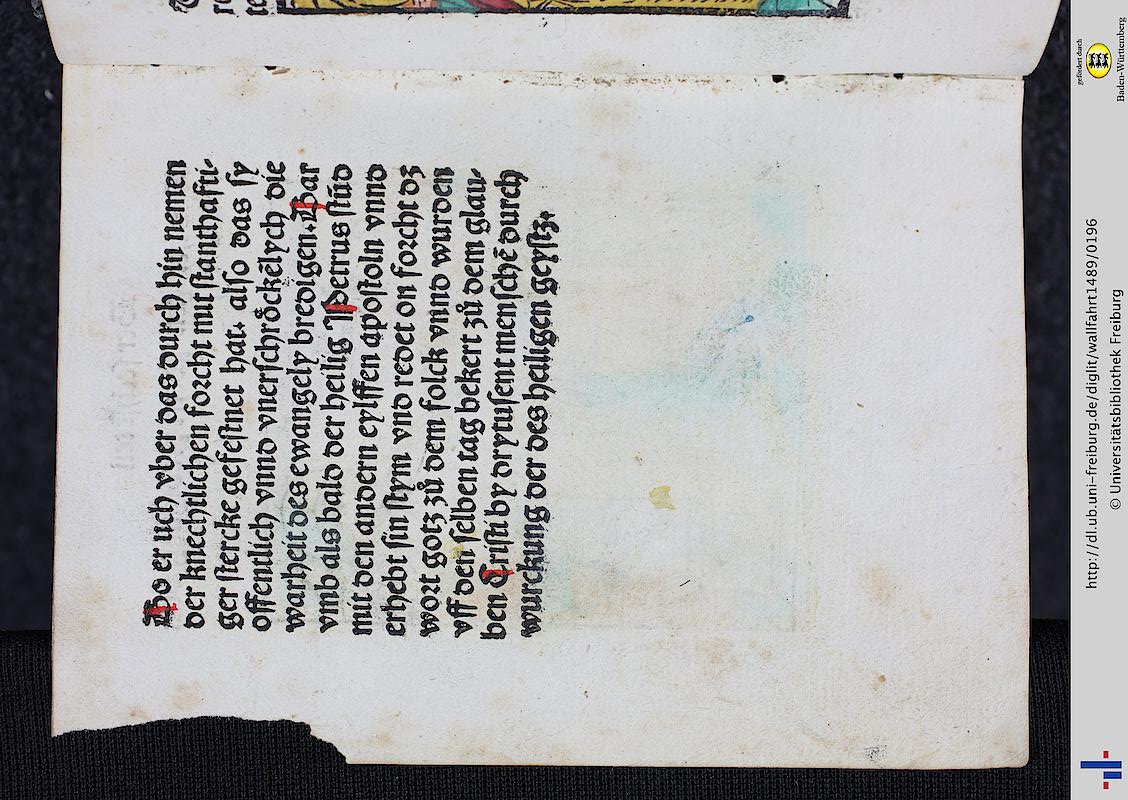 Do er uch vber das durch hin nemen
der knechtlichen forcht mit stanthafti-
ger stercke gefestnet hat. also das sy
offentlich vnnd vnerschröckelych die
warheit des ewangely bredigen. Dar
vmb als bald der heilig Petrus stůd
mit den andern eylffen apostoln vnnd
erhebt sin stym vnd redet on forcht dz
wort gotz zů dem folck vnnd wurden
vff den selben tag bekert zů dem glau-
ben Cristi by drytusent menschē durch
wurckung der des heiligen geystz.
gefördert durch
Baden-Württemberg
http://dl.ub.uni-freiburg.de/diglit/wallfahrt1489/0196
© Universitätsbibliothek Freiburg